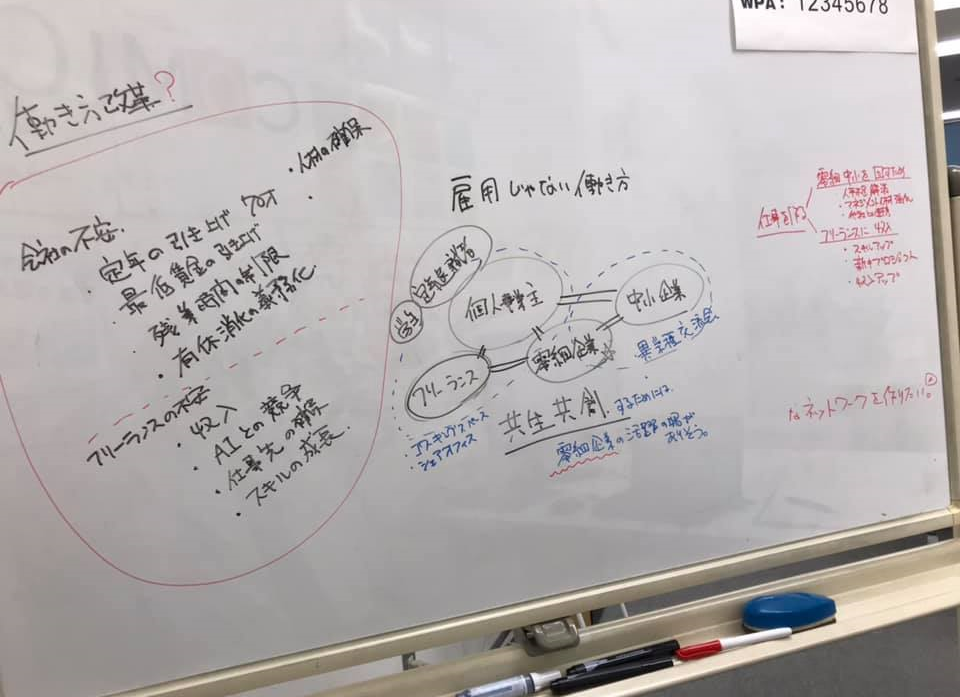 WPA: 12345678
働き方改革?
会社の不安
・人材の確保
・定年の引き上げ 70才
・最低賃金の引き上げ
・残業時間の制限
・有休消化の義務化
フリーランスの不安
・収入
・AIとの競争
・仕事先の確保
・スキルの成長
雇用じゃない働き方
学生
定年退職者
個人事業主
中小企業
フリーランス
零細企業
異業種交流会
・コワーキングスペース
・シェアオフィス
共生共創するためには、
零細企業の活躍の場が
ありそう。
零細中小を回すため
・マネジメント
フリーランスに収入
・スキルアップ
・新しいプロジェクト
・収入アップ
なネットワークを作りたい。